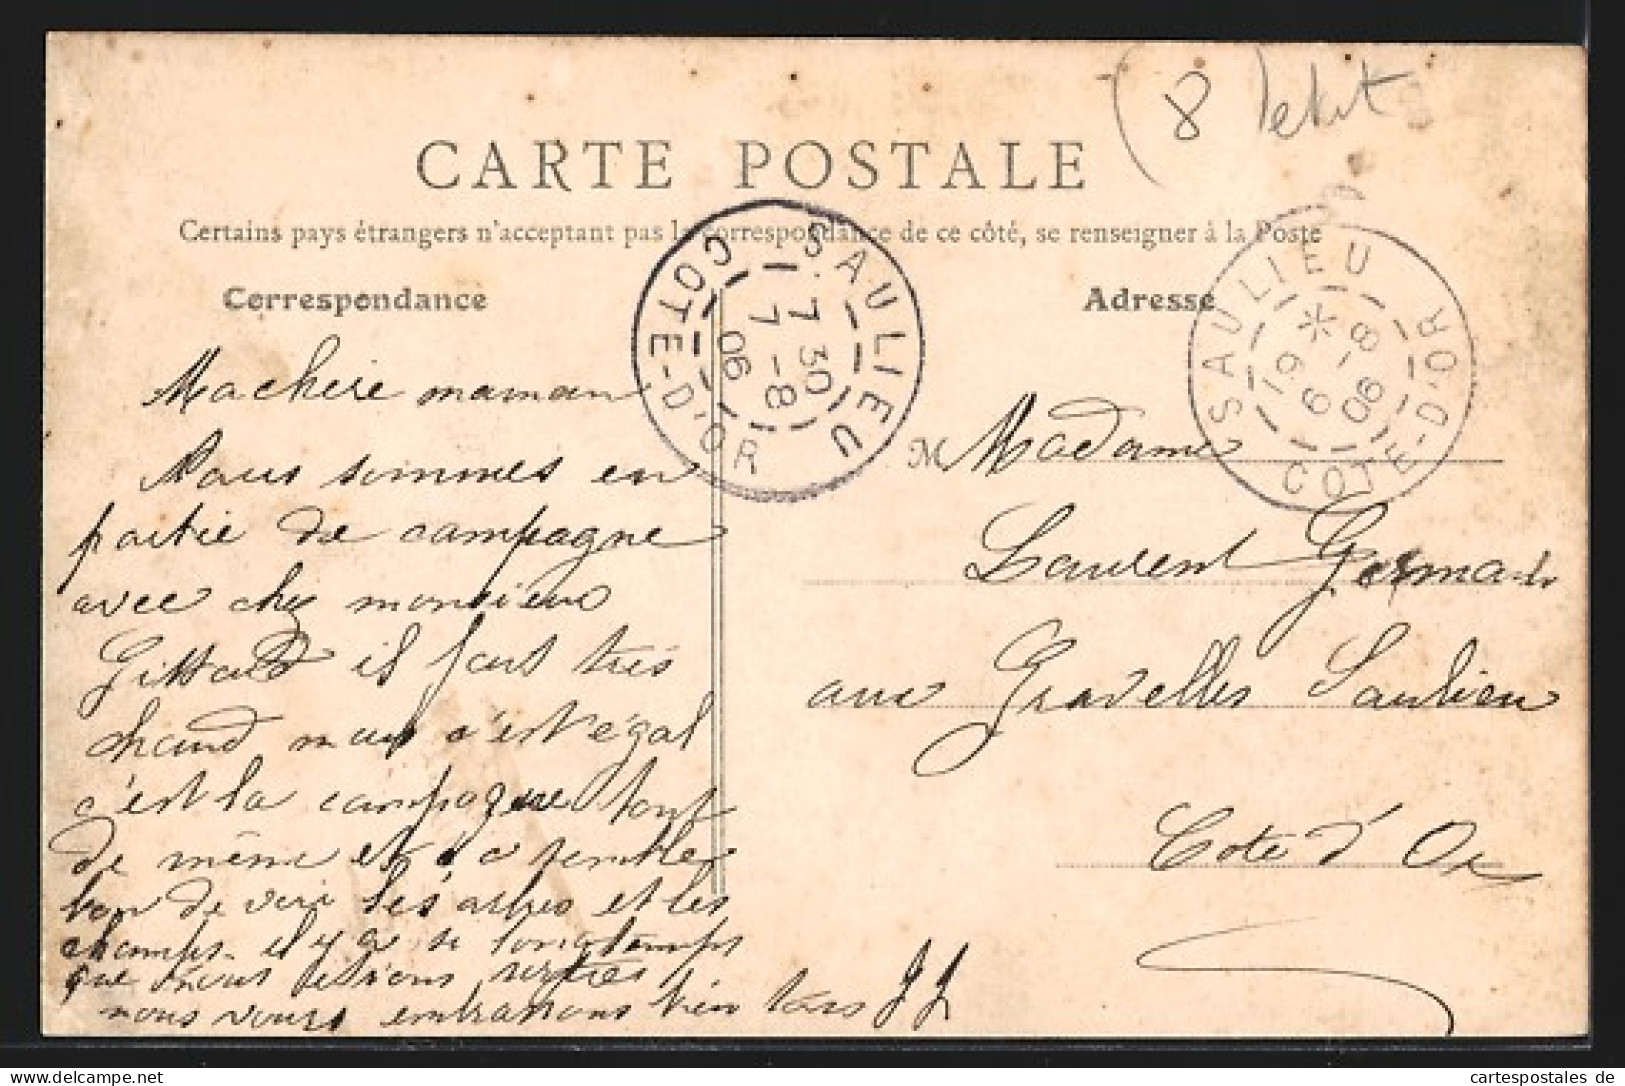 8 Petit
CARTE POSTALE
Certains pays étrangers n'acceptant pas la correspondance de ce côté, se renseigner à la Poste
Correspondance
Ma chère maman
Nous sommes en
partie de campagne
avec chez monsieur
Gittard il fait très
chaud mais c'est égal
c'est la campagne tout
de même et ça semble
bon de voir les arbres et les
champs. il y a si longtemps
que nous étions
nous vous embrassons bien tous
SAULIEU
COTE-D'OR
7 30
7 -8
06
Adresse
SAULIEU
COTE-D'OR
* 19
6 -8
06
M Madame
Laurent
aux Gravelles Saulieu
Cote d'Or
https://www.cartespostales.eu
cartespostales de